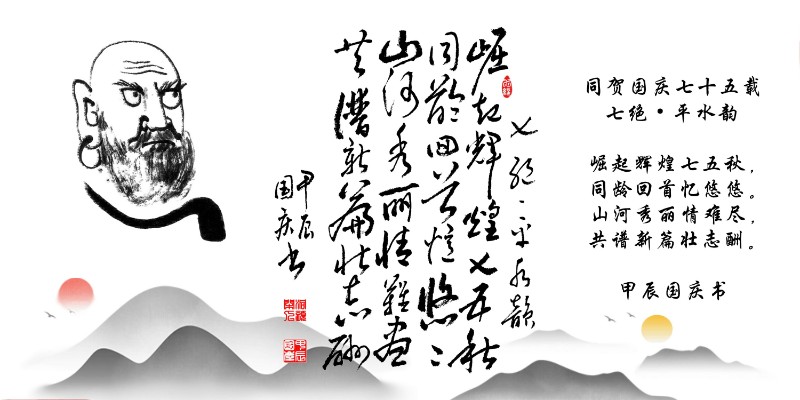 七绝·平水韵
崛起辉煌七五秋
同龄回首忆悠悠
山河秀丽情难尽
共谱新篇壮志酬
甲辰
国庆书
同贺国庆七十五载
七绝·平水韵
崛起辉煌七五秋，
同龄回首忆悠悠。
山河秀丽情难尽，
共谱新篇壮志酬。
甲辰国庆书